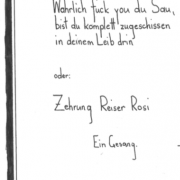 Wahrlich fuck you du Sau,
bist du komplett zugeschissen
in deinem Leib drin
oder:
Zehrung Reiser Rosi
Ein Gesang.